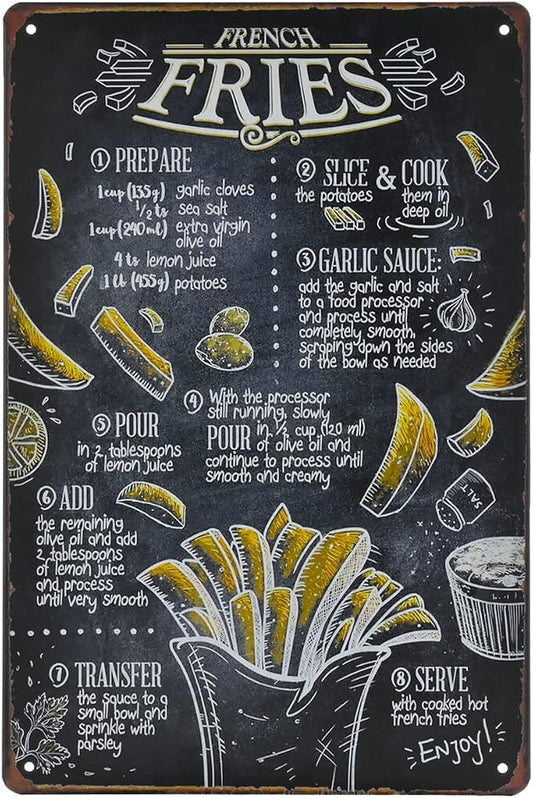 FRENCH
FRIES
1 PREPARE
1cup(135g) garlic cloves
1/2 ts sea salt
1cup(240ml) extra virgin
olive oil
4 ts lemon juice
1 lb (455g) potatoes
2 SLICE & COOK
the potatoes
them in
deep oil
3 GARLIC SAUCE:
add the garlic and salt
to a food processor
and process until
completely smooth,
scraping down the sides
of the bowl as needed
4 With the processor
still running, slowly
POUR in 1/2 cup (120 ml)
of olive oil and
continue to process until
smooth and creamy
5 POUR
in 2 tablespoons
of lemon juice
6 ADD
the remaining
olive oil and add
2 tablespoons
of lemon juice
and process
until very smooth
SALT
7 TRANSFER
the sauce to a
small bowl and
sprinkle with
parsley
8 SERVE
with cooked hot
french fries
ENJOY!